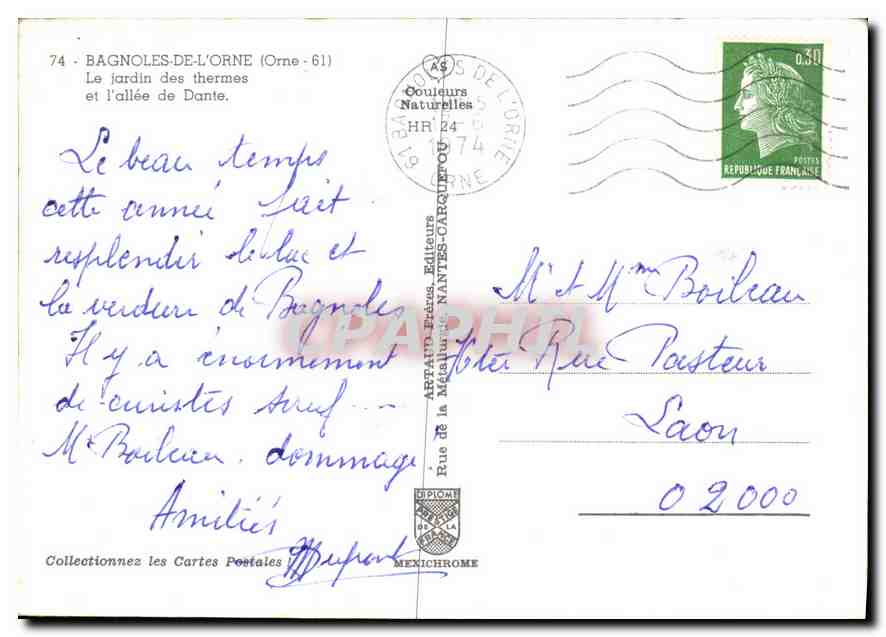 74 - BAGNOLES-DE-L'ORNE (Orne - 61)
Le jardin des thermes
et l'allée de Dante.
Le beau temps
cette année fait
resplendir le lac et
la verdure de Bagnoles
Il y a énormément
de curistes sauf ---
Mr Boileau. dommage
Amitiés
Dupont
Collectionnez les Cartes Postales !
AS
Couleurs
Naturelles
HR 24
61 BAGNOLES DE L'ORNE
1974
ORNE
ARTAUD Frères, Editeurs
Rue de la Métallurgie, NANTES-CARQUEFOU
DIPLOME
PRESTIGE
DE LA
FRANCE
MEXICHROME
0,30
POSTES
REPUBLIQUE FRANÇAISE
Mr et Mme Boileau
Rue Pasteur
Laon
02000
CPAPHIL